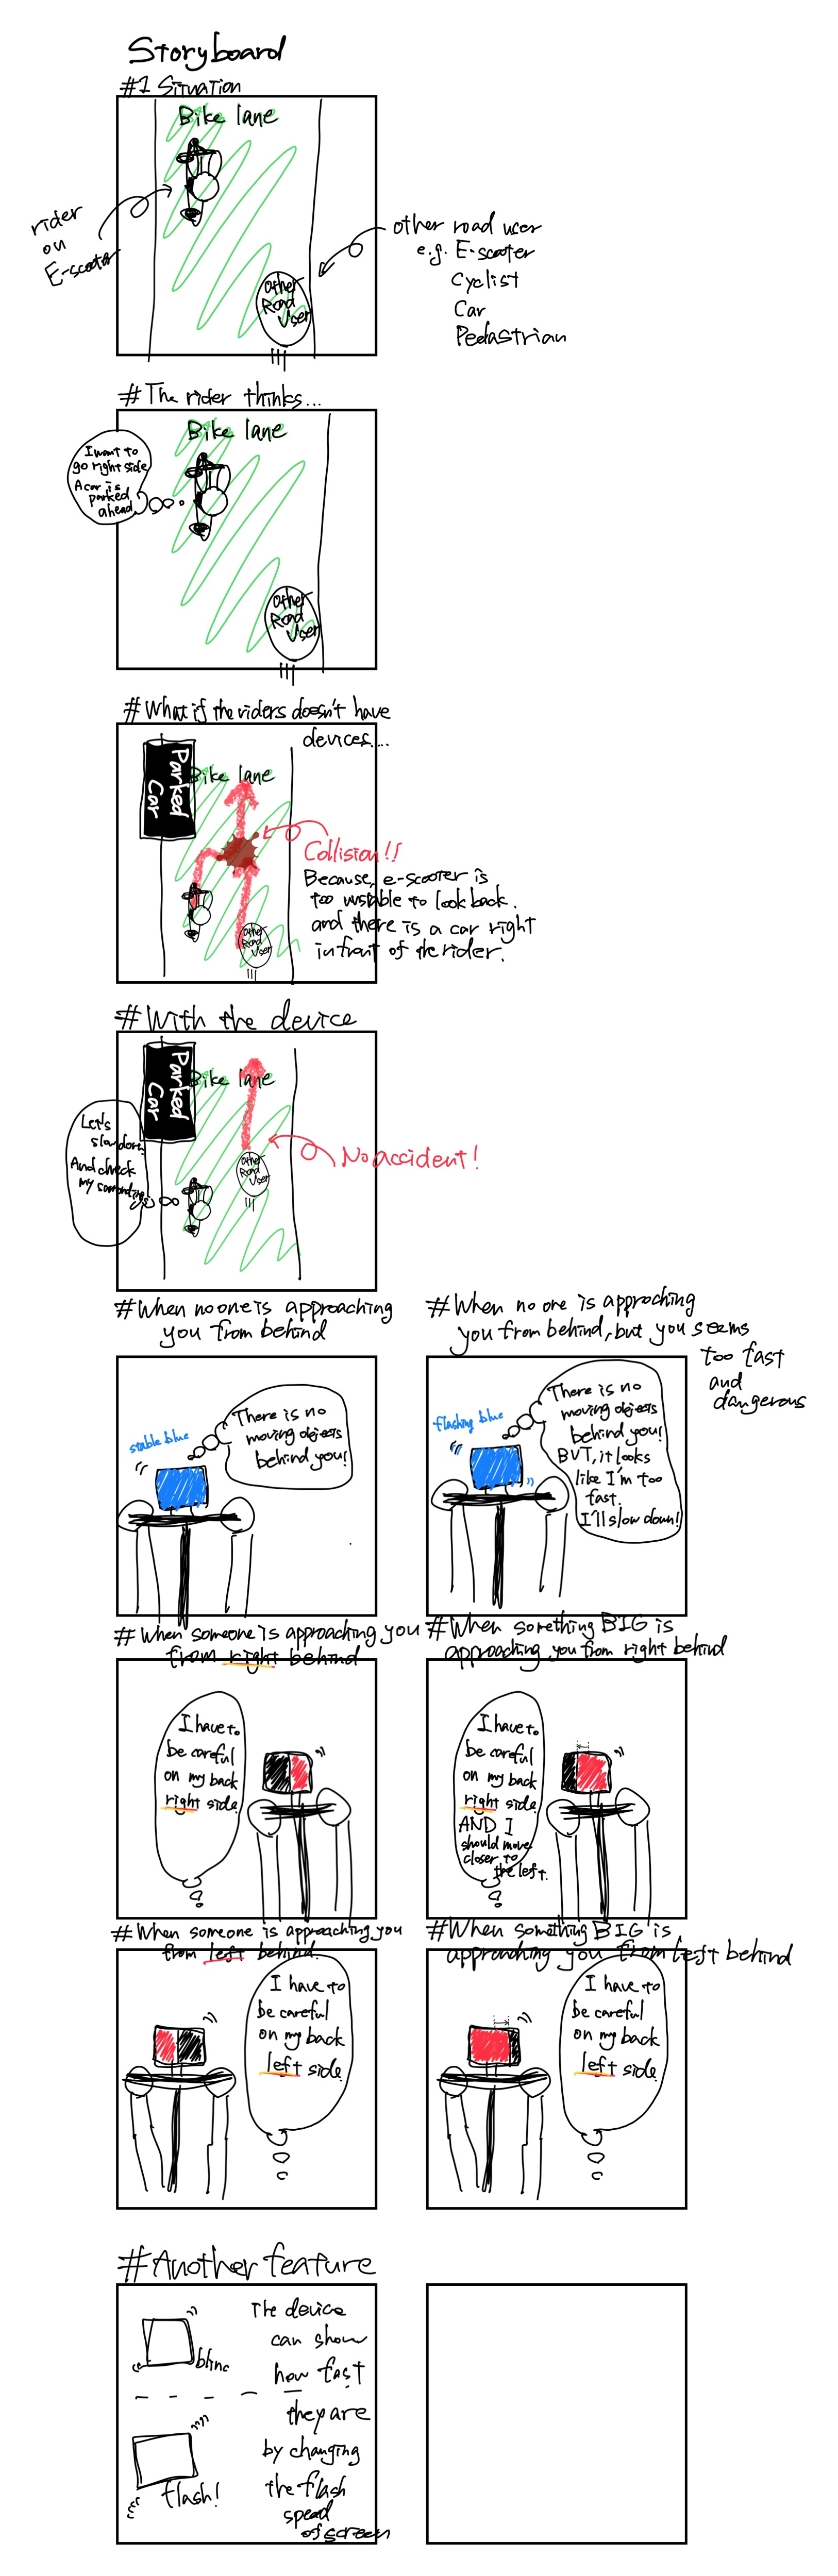 Storyboard
#1 Situation
Bike lane
rider
on
E-scooter
other road user
e.g. E-scooter
Cyclist
Car
Pedastrian
Other
Road
User
# The rider thinks...
Bike lane
I want to
go right side
A car is
parked
ahead
Other
Road
User
# What if the riders doesn't have
devices....
Parked
Car
Bike lane
Collision!!
Because, e-scooter is
too unstable to look back.
and there is a car right
in front of the rider.
Other
Road
User
# With the device
Parked
Car
Bike lane
Let's
slow down.
And check
my
Other
Road
User
No accident!
# When no one is approaching
you from behind
stable blue
There is no
moving objects
behind you!
# When no one is approching
you from behind, but you seems
too fast
and
dangerous
flashing blue
There is no
moving objects
behind you!
BUT, it looks
like I'm too
fast.
I'll slow down!
# When someone is approaching you
from right behind
I have to
be careful
on my back
right side
# When something BIG is
approaching you from right behind
I have to
be careful
on my back
right side
AND I
should move
closer to
the left.
# When someone is approaching you
from left behind.
I have to
be careful
on my back
left side
# When something BIG is
approaching you from left behind
I have to
be careful
on my back
left side
# Another feature
blinc
flash!
The device
can show
how fast
they are
by changing
the flash
spead
of screen